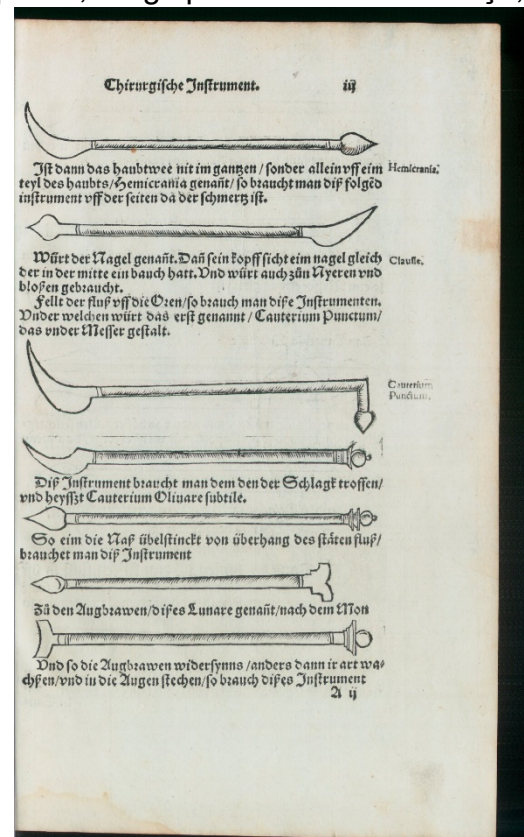 Chirurgische Instrument. iij
Ist dann das haubtwee nit im gantzen / sonder allein vff eim
teyl des haubts/Hemicrania genañt/ so braucht man diß folgẽd
instrument vff der seiten da der schmertz ist.
Hemicrania.
Würt der Nagel genañt. Dañ sein kopff sicht eim nagel gleich
der in der mitte ein bauch hatt. Vnd würt auch zůn Nyeren vnd
bloßen gebraucht.
Clauslle.
Fellt der fluß vff die Oren/so brauch man diße Instrumenten.
Vnder welchen würt das erst genannt / Cauterium Punctum/
das vnder Messer gestalt.
Cauterium
Punctum.
Diß Instrument braucht man dem den der Schlagk troffen/
vnd heyßzt Cauterium Oliuare subtile.
So eim die Naß übelstinckt von überhang des stäten fluß/
brauchet man diß Instrument
Zů den Augbrawen/dißes Lunare genañt/nach dem Mon
Vnd so die Augbrawen widersynns /anders dann ir art wa⸗
chßen/vnd in die Augen stechen/so brauch dißes Instrument
A ij